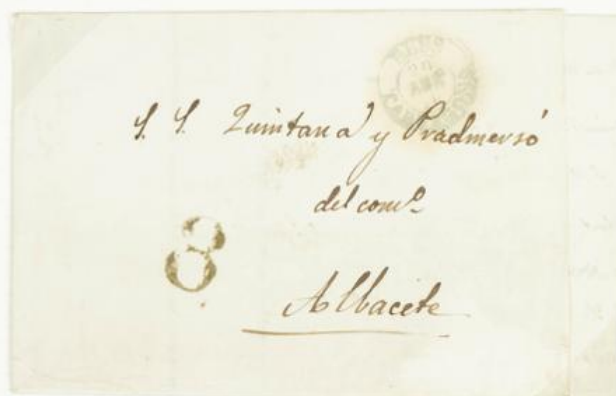 REUS
20
ABR
S. S. Quintana y Pradmersó
del comº
8
Albacete